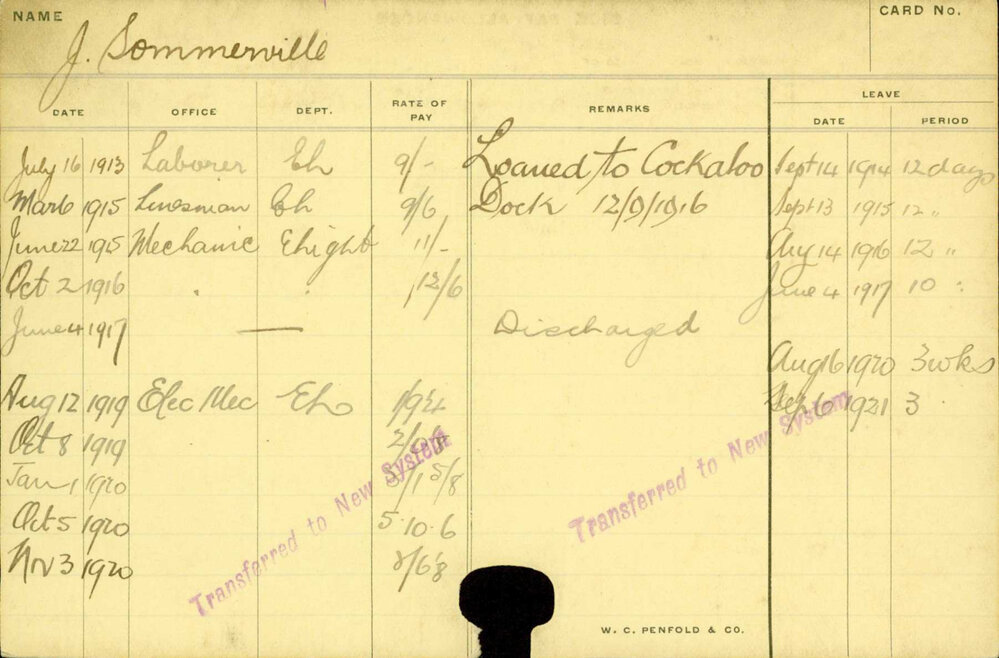 NAME
CARD NO.
J. Sommerville
DATE OFFICE DEPT. RATE OF PAY REMARKS LEAVE
DATE PERIOD
July 16 1913 Laborer Eh 9/- Loaned to Cockaloo Sept 14 1914 12 days
Mar 6 1915 Linesman Eh 9/6 Dock Sept 13 1915 12 "
June 22 1915 Mechanic Ehight 11/- Aug 14 1916 12 "
Oct 2 1916 " " 12/6 June 4 1917 10 "
June 4 1917 — Discharged
Aug 16 1920 3 wks
Aug 12 1919 Elec Mec Eh Sep 6 1921 3
Oct 8 1919
Jan 1 1920
Oct 5 1920 5.10.6
Nov 3 1920
Transferred to New System
Transferred to New System
W. C. PENFOLD & CO.